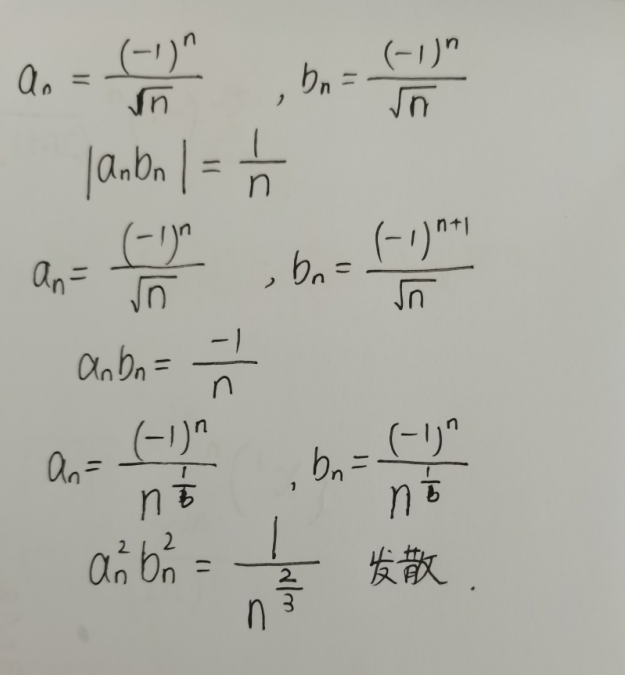 aₙ = (-1)ⁿ/√n , bₙ = (-1)ⁿ/√n
|aₙbₙ| = 1/n
aₙ = (-1)ⁿ/√n , bₙ = (-1)ⁿ⁺¹/√n
aₙbₙ = -1/n
aₙ = (-1)ⁿ/n^(1/6) , bₙ = (-1)ⁿ/n^(1/6)
aₙ²bₙ² = 1/n^(2/3) 发散.